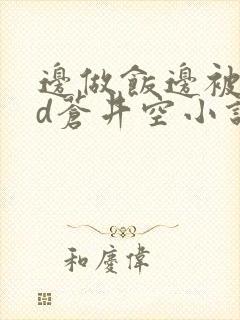 邊做飯邊被
d蒼井空小說
和慶偉